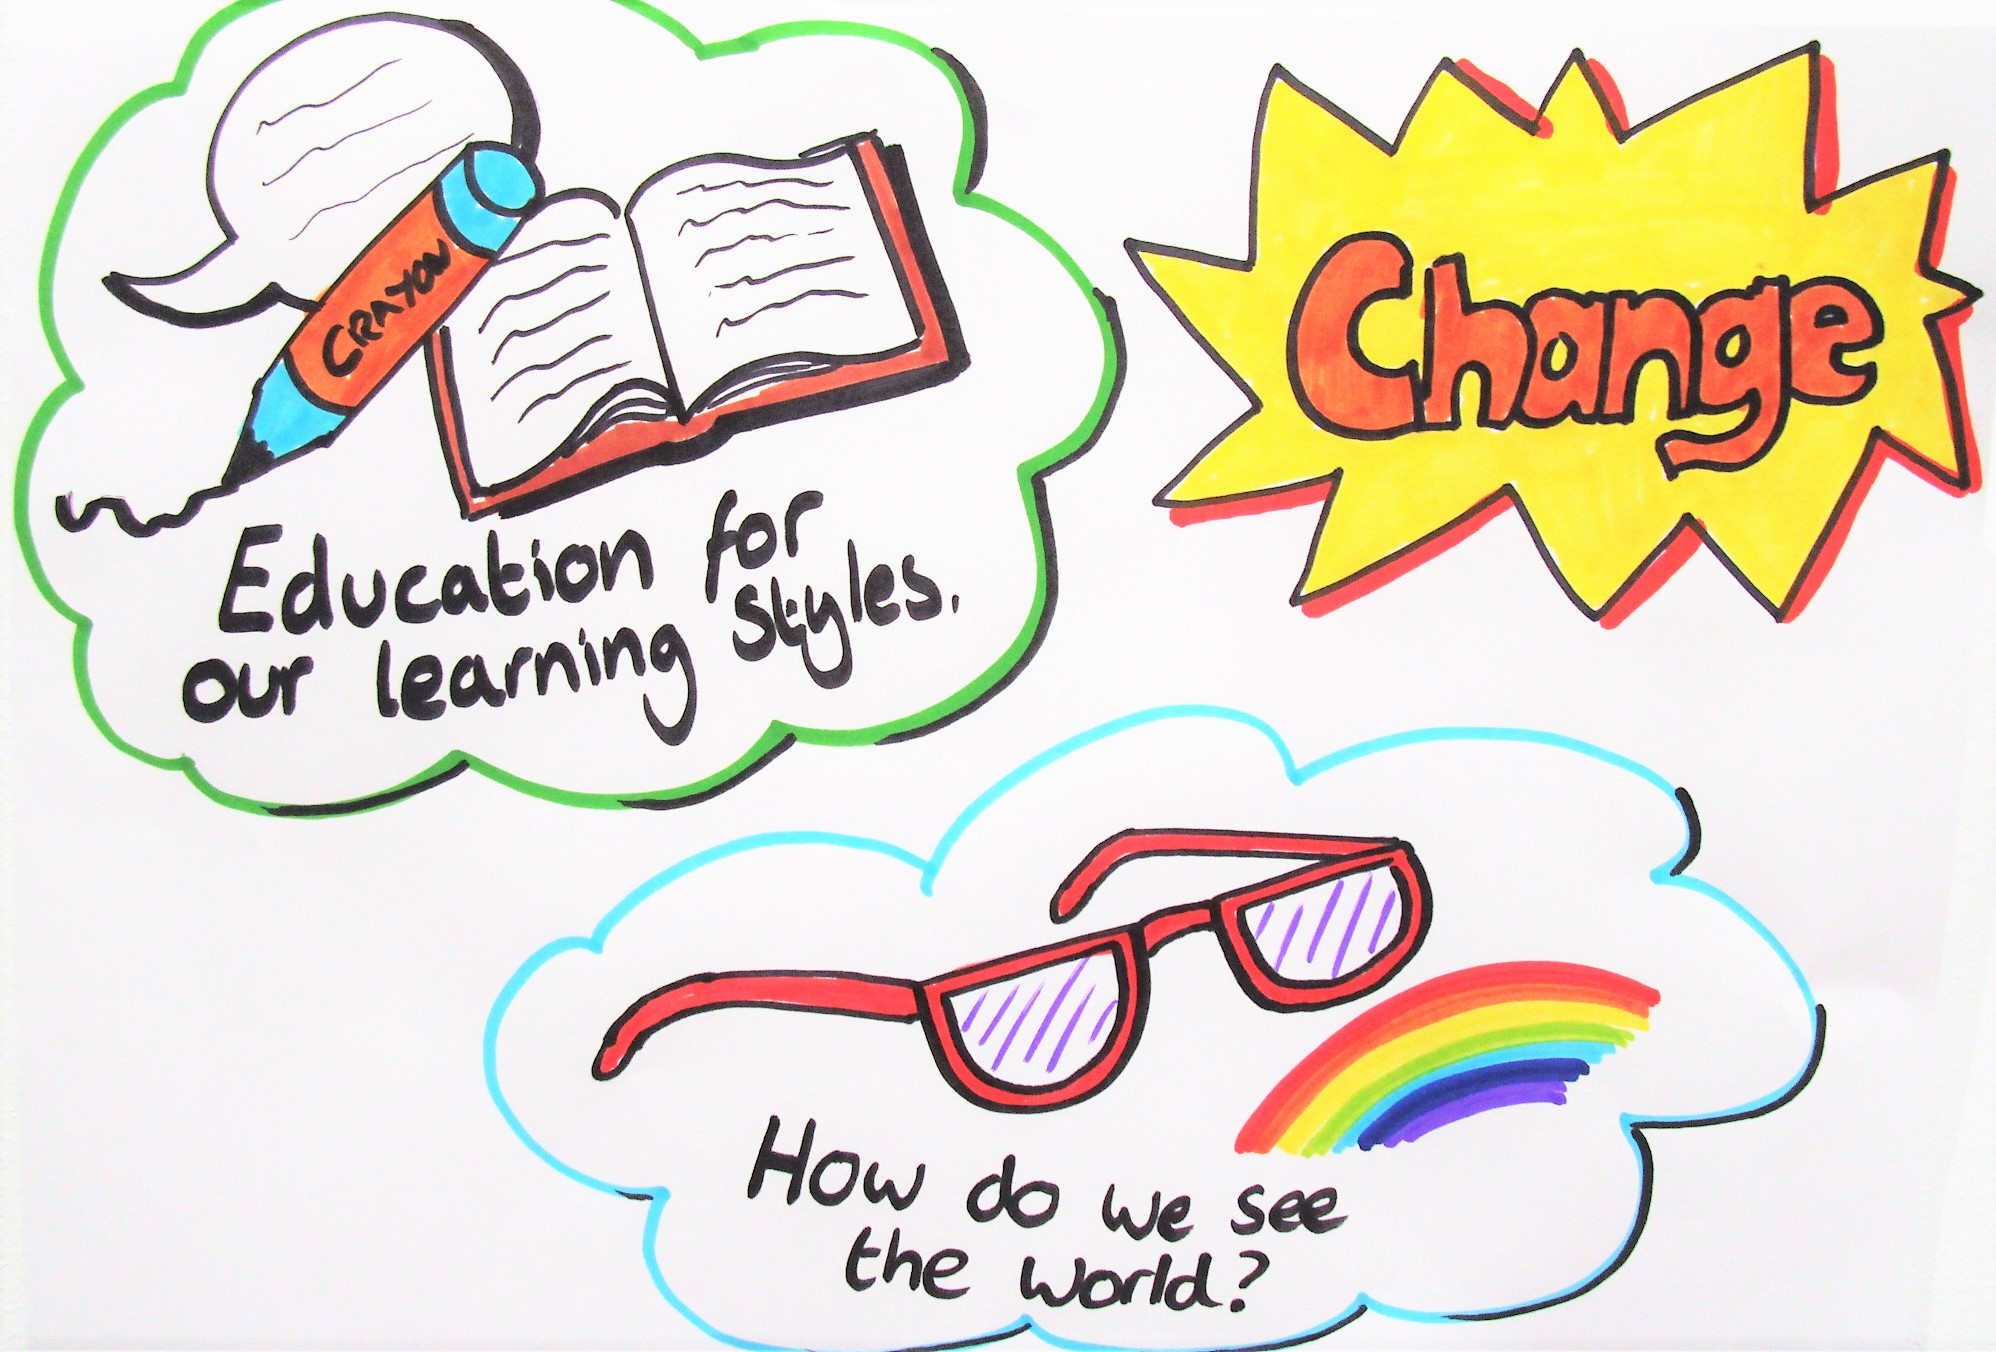 CRAYON
Education for
our learning styles.
Change
How do we see
the world?